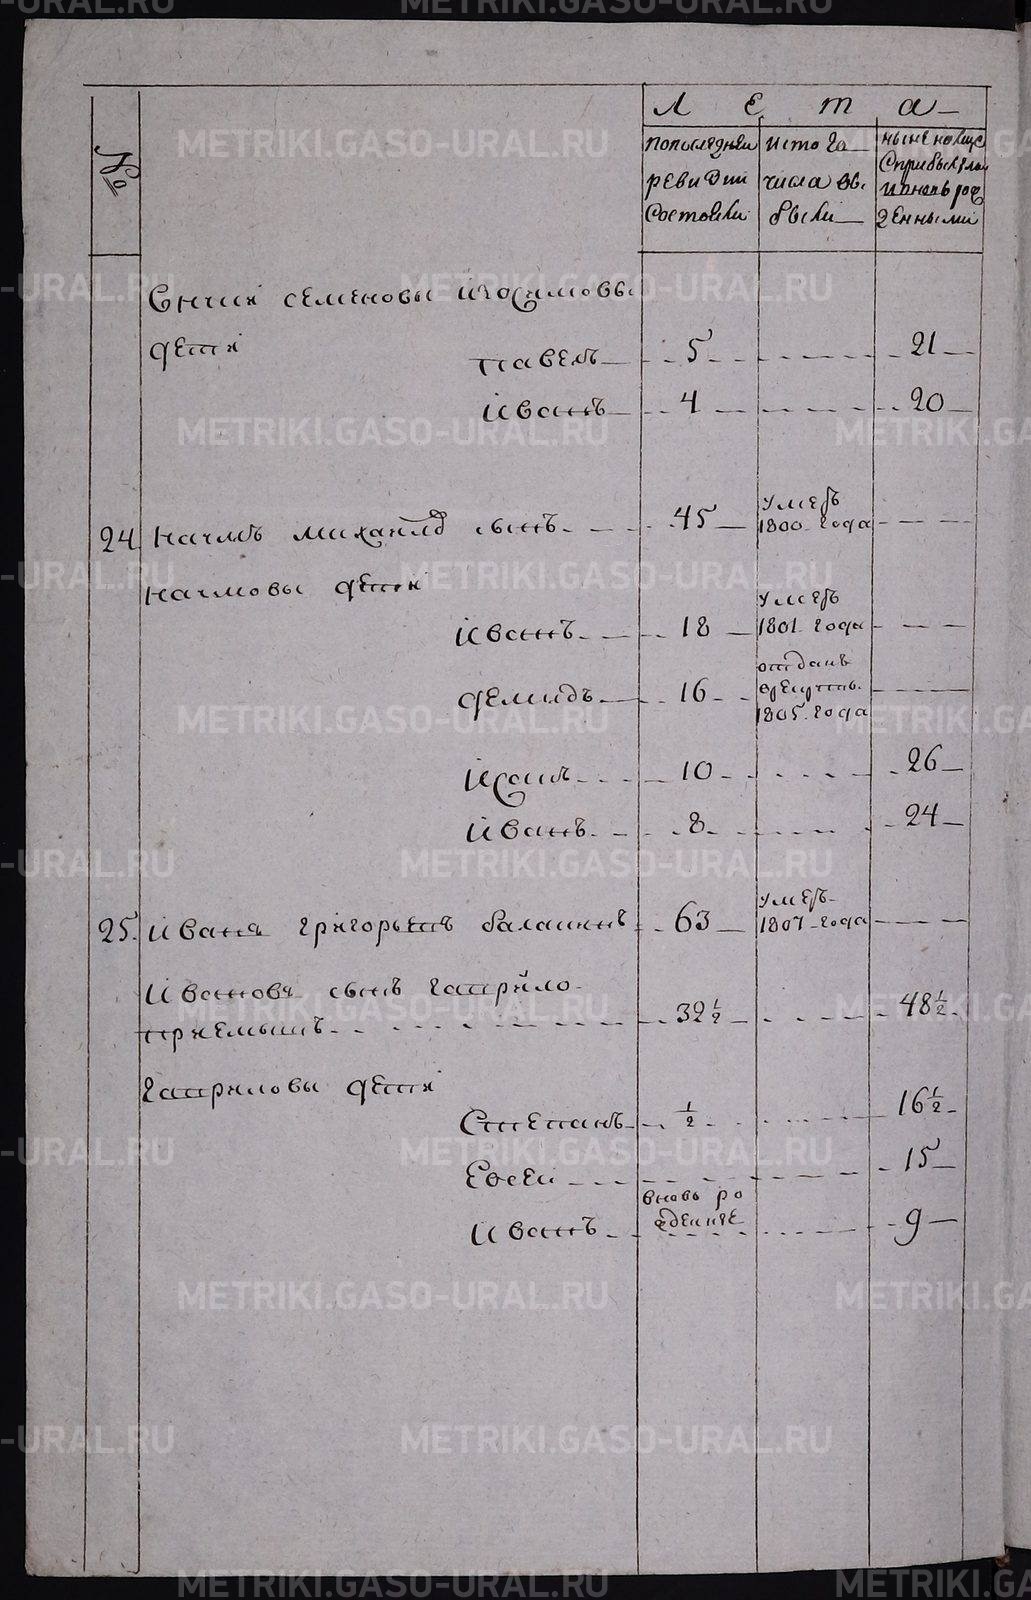 №
Лета
по последней ревизии состояли
ис того числа выбыли
ныне налицо с прибылыми и вновь рожденными
семеновы
дети
павелъ 5 21
иванъ 4 20
24 наумъ михайлов сынъ 45 умеръ 1800 года
наумовы дети
иванъ 18 умеръ 1801 года
демидъ 16 отданъ 1805 года
исаия 10 26
иванъ 8 24
25. иванъ григорьевъ балакинъ 63 умеръ 1807 года
ивановъ сынъ гаврило
приемышъ 32 1/2 48 1/2
гавриловы дети
степанъ 1/2 16 1/2
евсей 15
вновь ро
иванъ ждение 9
METRIKI.GASO-URAL.RU